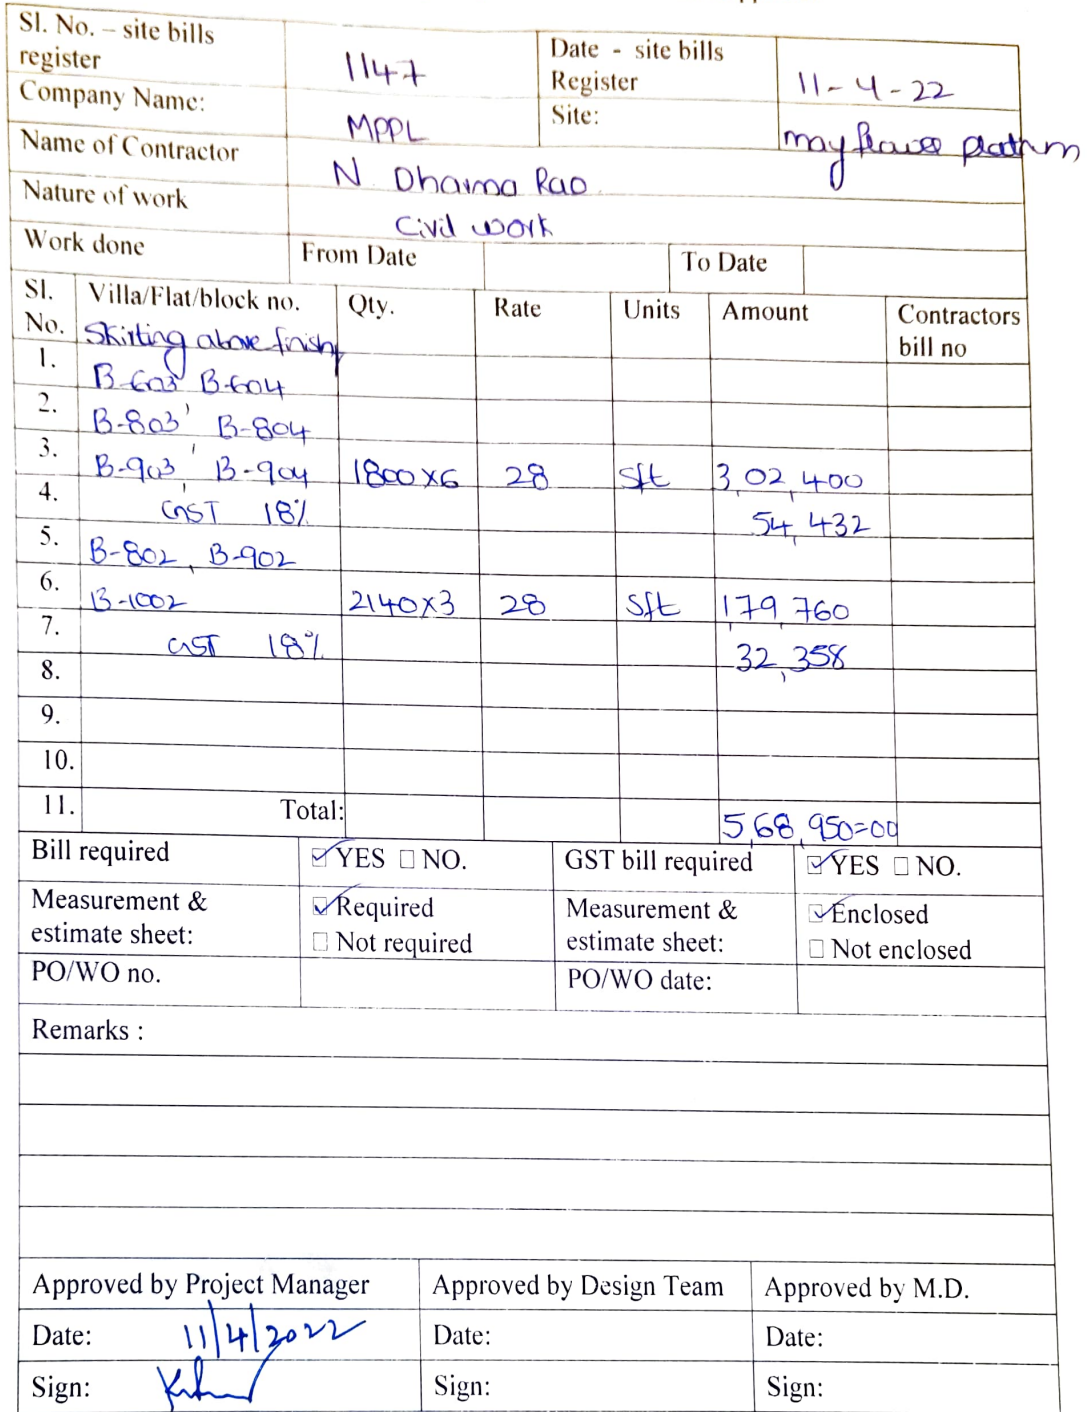 Sl. No. – site bills register 1147 Date - site bills Register 11-4-22
Company Name: MPPL Site: mayflower platinum
Name of Contractor N. Dharma Rao
Nature of work Civil work
Work done From Date To Date
Sl. No. Villa/Flat/block no. Qty. Rate Units Amount Contractors bill no
Skirting above finish
1. B-603, B-604
2. B-803, B-804
3. B-903, B-904 1800x6 28 Sft 3,02,400
4. GST 18% 54,432
5. B-802, B-902
6. B-1002 2140x3 28 Sft 1,79,760
7. GST 18% 32,358
8.
9.
10.
11. Total: 5,68,950=00
Bill required ☑ YES ☐ NO. GST bill required ☑ YES ☐ NO.
Measurement & estimate sheet: ☑ Required ☐ Not required Measurement & estimate sheet: ☑ Enclosed ☐ Not enclosed
PO/WO no. PO/WO date:
Remarks :
Approved by Project Manager Approved by Design Team Approved by M.D.
Date: 11/4/2022 Date: Date:
Sign: Sign: Sign: